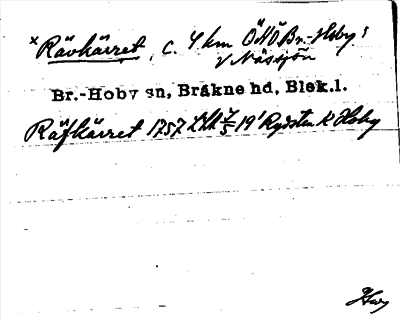 × Rävkärret, c. 4 km ÖNÖ Br.-Hoby s
V Nässjön
Br.-Hoby sn, Bräkne hd, Blek.l.
Räfkärret 1757 LSA 7/5 19' Rydsten K Hoby